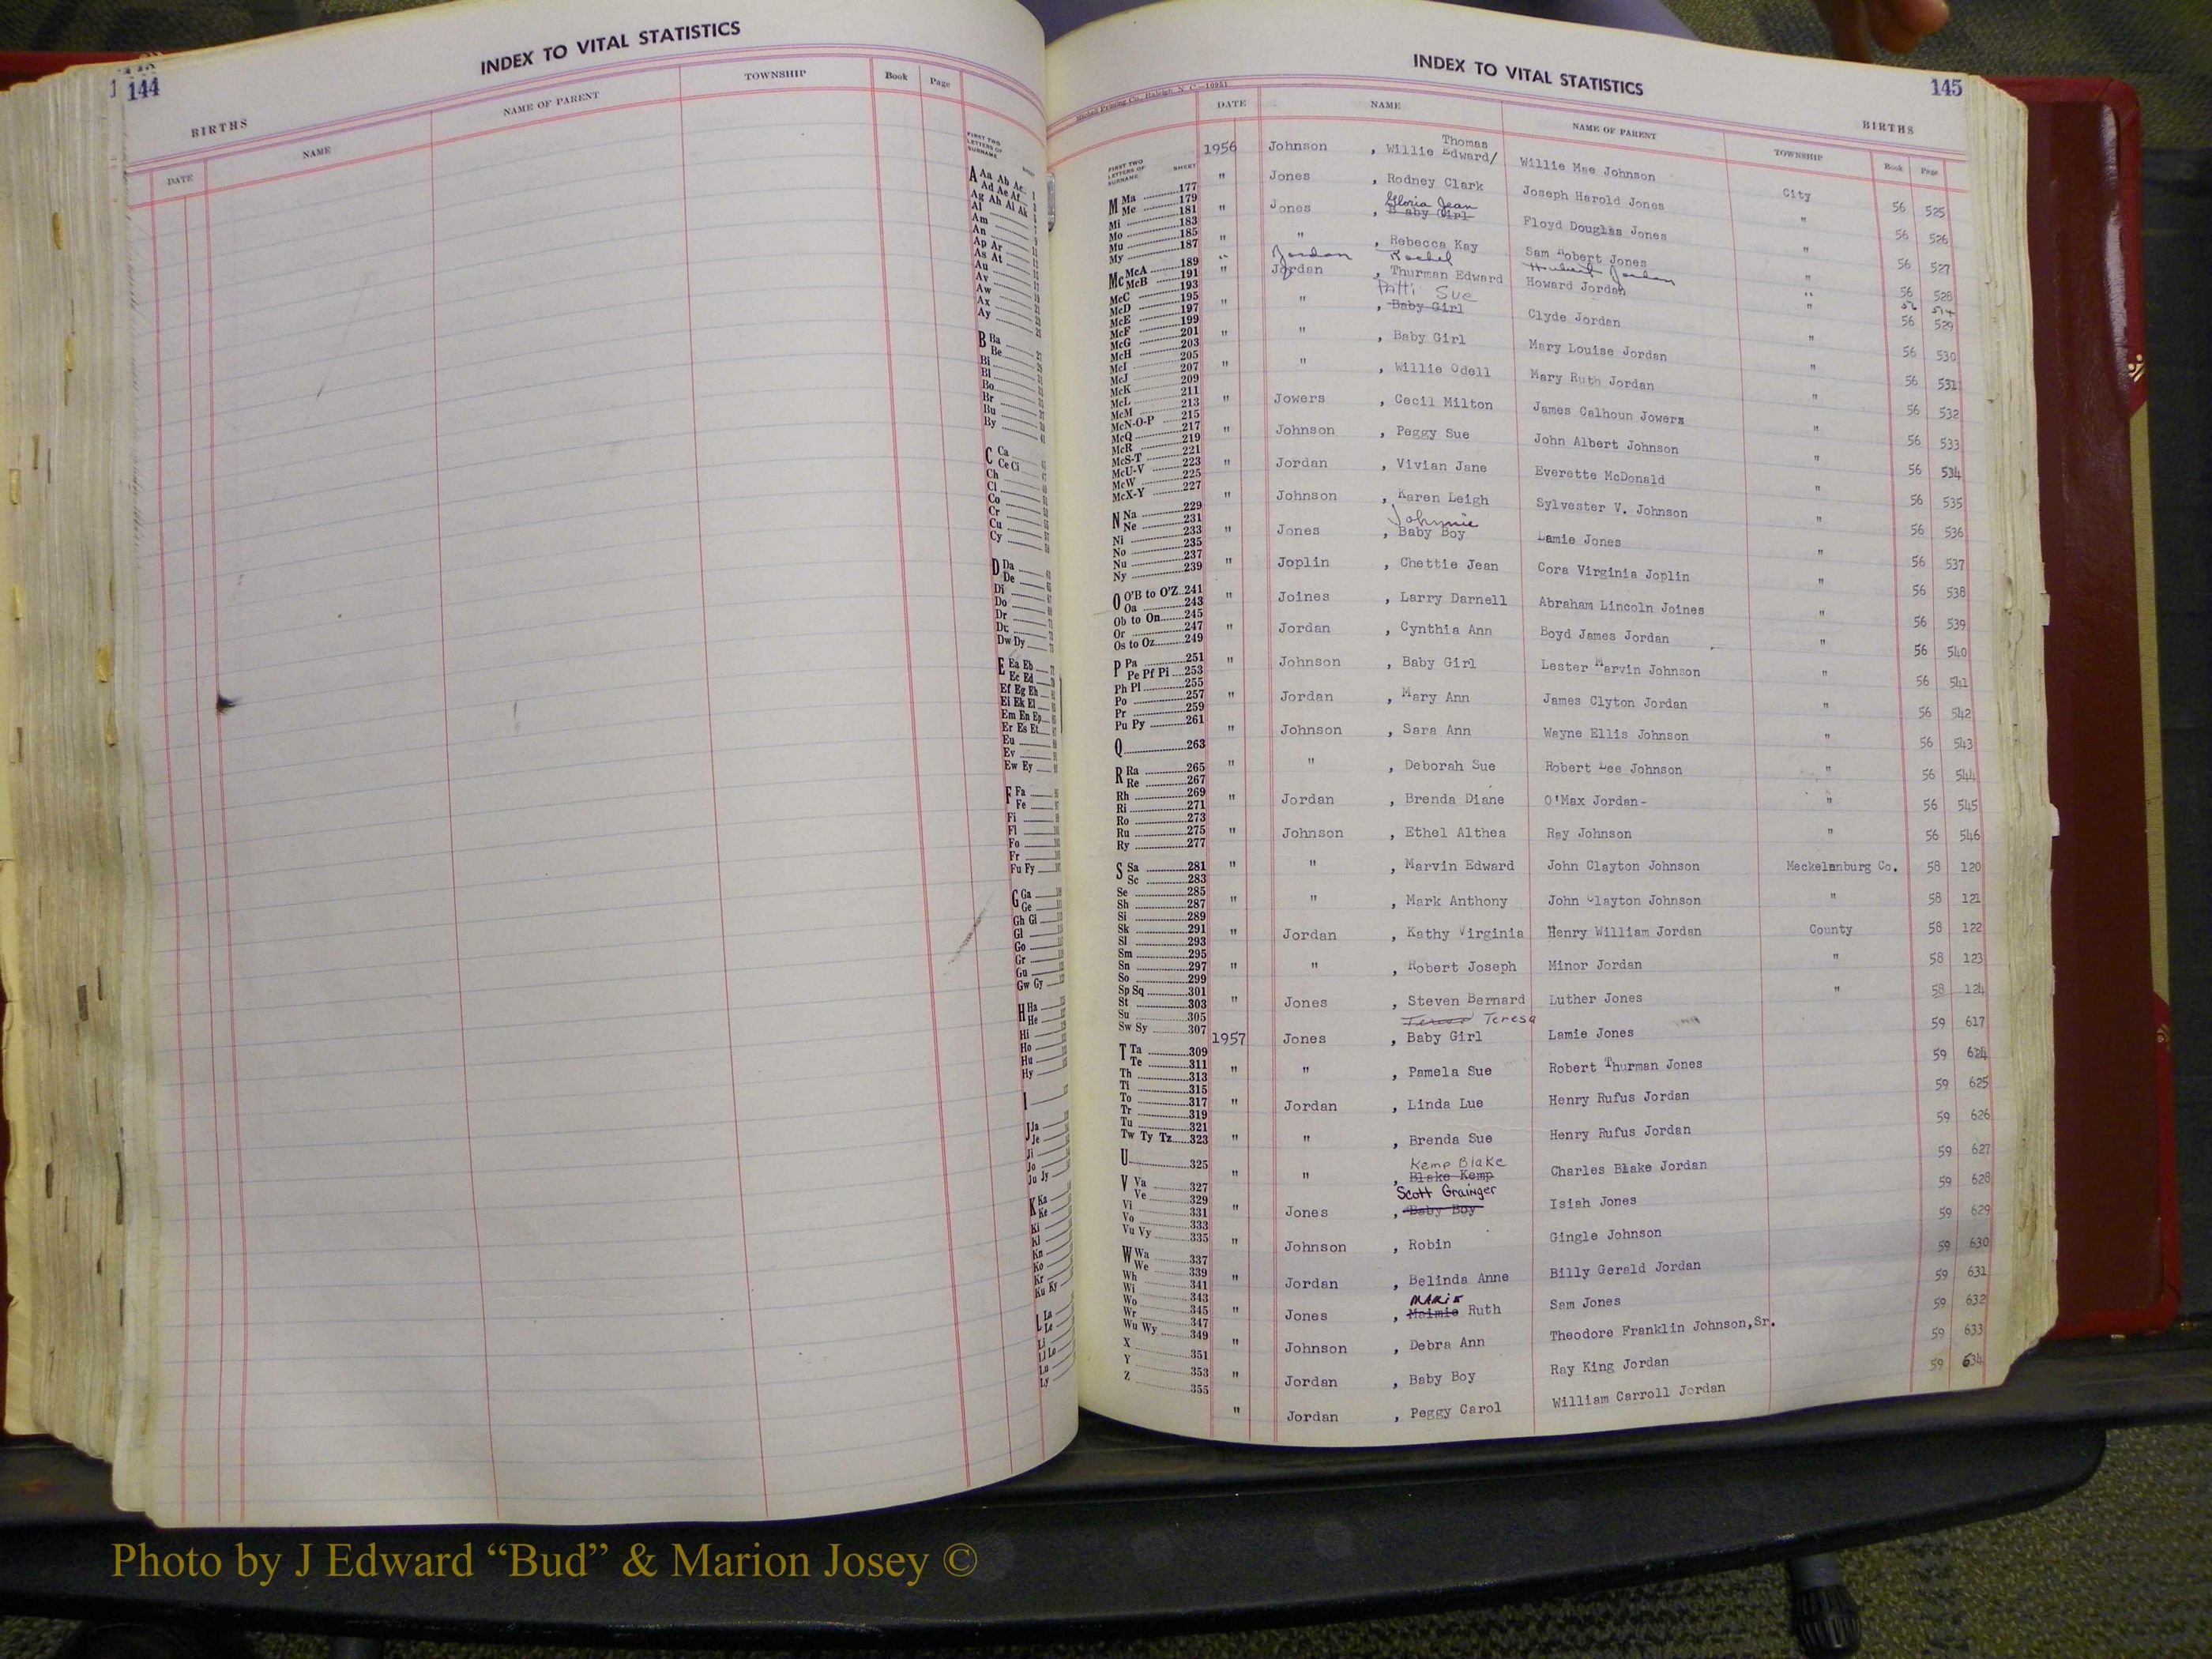 INDEX TO VITAL STATISTICS
144
BIRTHS
DATE NAME NAME OF PARENT TOWNSHIP Book Page
FIRST TWO LETTERS OF SURNAME
A Aa Ab Ac
Ad Ae Af
Ag Ah Ai Ak
Al
Am
An
Ap Ar
As At
Au
Av
Aw
Ax
Ay
B Ba
Be
Bi
Bl
Bo
Br
Bu
By
C Ca
Ce Ci
Ch
Cl
Co
Cr
Cu
Cy
D Da
De
Di
Do
Dr
Du
Dw Dy
E Ea Eb
Ec Ed
Ef Eg Eh
Ei Ek El
Em En Ep
Er Es Et
Eu
Ev
Ew Ey
F Fa
Fe
Fi
Fl
Fo
Fr
Fu Fy
G Ga
Ge
Gh Gi
Gl
Go
Gr
Gu
Gw Gy
H Ha
He
Hi
Ho
Hu
Hy
I
J Ja
Je
Ji
Jo
Ju Jy
K Ka
Ke
Ki
Kl
Kn
Ko
Kr
Ku Ky
L La
Le
Li
Ll Lo
Lu
Ly
INDEX TO VITAL STATISTICS
145
BIRTHS
DATE NAME NAME OF PARENT TOWNSHIP Book Page
FIRST TWO LETTERS OF SURNAME SHEET
M Ma 177
Me 179
Mi 181
Mo 183
Mu 185
My 187
Mc McA 189
McB 191
McC 193
McD 195
McE 197
McF 199
McG 201
McH 203
McI 205
McJ 207
McK 209
McL 211
McM 213
McN-O-P 215
McQ 217
McR 219
McS-T 221
McU-V 223
McW 225
McX-Y 227
N Na 229
Ne 231
Ni 233
No 235
Nu 237
Ny 239
O O'B to O'Z 241
Oa 243
Ob to On 245
Or 247
Os to Oz 249
P Pa 251
Pe Pf Pi 253
Ph Pl 255
Po 257
Pr 259
Pu Py 261
Q 263
R Ra 265
Re 267
Rh 269
Ri 271
Ro 273
Ru 275
Ry 277
S Sa 281
Sc 283
Se 285
Sh 287
Si 289
Sk 291
Sl 293
Sm 295
Sn 297
So 299
Sp Sq 301
St 303
Su 305
Sw Sy 307
T Ta 309
Te 311
Th 313
Ti 315
To 317
Tr 319
Tu 321
Tw Ty Tz 323
U 325
V Va 327
Ve 329
Vi 331
Vo 333
Vu Vy 335
W Wa 337
We 339
Wh 341
Wi 343
Wo 345
Wr 347
Wu Wy 349
X 351
Y 353
Z 355
Thomas
1956 Johnson , Willie Edward/ Willie Mae Johnson City 56 525
" Jones , Rodney Clark Joseph Harold Jones " 56 526
Gloria Jean
" Jones , Baby Girl Floyd Douglas Jones " 56 527
" " , Rebecca Kay Sam Robert Jones " 56 528
" Jordan Rachel Jordan " 56 514
" Jordan , Thurman Edward Howard Jordan " 56 529
Patti Sue
" " , Baby Girl Clyde Jordan " 56 530
" " , Baby Girl Mary Louise Jordan " 56 531
" " , Willie Odell Mary Ruth Jordan " 56 532
" Jowers , Cecil Milton James Calhoun Jowers " 56 533
" Johnson , Peggy Sue John Albert Johnson " 56 534
" Jordan , Vivian Jane Everette McDonald " 56 535
" Johnson , Karen Leigh Sylvester V. Johnson " 56 536
Johnnie
" Jones , Baby Boy Lamie Jones " 56 537
" Joplin , Chettie Jean Cora Virginia Joplin " 56 538
" Joines , Larry Darnell Abraham Lincoln Joines " 56 539
" Jordan , Cynthia Ann Boyd James Jordan " 56 540
" Johnson , Baby Girl Lester Marvin Johnson " 56 541
" Jordan , Mary Ann James Clyton Jordan " 56 542
" Johnson , Sara Ann Wayne Ellis Johnson " 56 543
" " , Deborah Sue Robert Lee Johnson " 56 544
" Jordan , Brenda Diane O'Max Jordan- " 56 545
" Johnson , Ethel Althea Ray Johnson " 56 546
" " , Marvin Edward John Clayton Johnson Meckelanburg Co. 58 120
" " , Mark Anthony John Clayton Johnson " 58 121
" Jordan , Kathy Virginia Henry William Jordan County 58 122
" " , Robert Joseph Minor Jordan " 58 123
" Jones , Steven Bernard Luther Jones " 58 124
Teresa
1957 Jones , Baby Girl Lamie Jones 59 617
" " , Pamela Sue Robert Thurman Jones 59 624
" Jordan , Linda Lue Henry Rufus Jordan 59 625
" " , Brenda Sue Henry Rufus Jordan 59 626
Kemp Blake
" " , Blake Kemp Charles Blake Jordan 59 627
Scott Grainger
" Jones , Baby Boy Isiah Jones 59 628
" Johnson , Robin Gingle Johnson 59 629
" Jordan , Belinda Anne Billy Gerald Jordan 59 630
Marie
" Jones , Maimie Ruth Sam Jones 59 631
" Johnson , Debra Ann Theodore Franklin Johnson,Sr. 59 632
" Jordan , Baby Boy Ray King Jordan 59 633
" Jordan , Peggy Carol William Carroll Jordan 59 634
Photo by J Edward “Bud” & Marion Josey ©